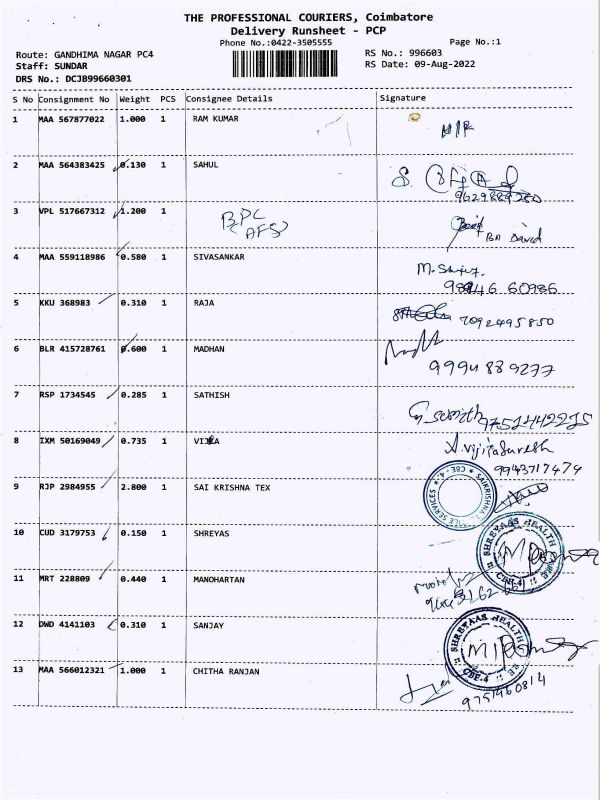 THE PROFESSIONAL COURIERS, Coimbatore
Delivery Runsheet - PCP
Phone No.:0422-3505555
Page No.:1
Route: GANDHIMA NAGAR PC4
RS No.: 996603
Staff: SUNDAR
RS Date: 09-Aug-2022
DRS No.: DCJB99660301
S No Consignment No Weight PCS Consignee Details Signature
1 MAA 567877022 1.000 1 RAM KUMAR
2 MAA 564383425 0.130 1 SAHUL
3 VPL 517667312 1.200 1 BPL
(AFS)
BA David
4 MAA 559118986 0.580 1 SIVASANKAR
98946 60986
5 KKU 368983 0.310 1 RAJA
7092495850
6 BLR 415728761 0.600 1 MADHAN
9994889277
7 RSP 1734545 0.285 1 SATHISH
9751442215
8 IXM 50169049 0.735 1
A.vijitaSuresh
9943717474
9 RJP 2984955 2.800 1 SAI KRISHNA TEX
10 CUD 3179753 0.150 1 SHREYAS
SHREYAAS HEALTH
CBE-4
11 MRT 228809 0.440 1 MANOHARTAN
12 DWD 4141103 0.310 1 SANJAY
SHREYAAS HEALTH
CBE-4
13 MAA 566012321 1.000 1 CHITHA RANJAN
9751960814